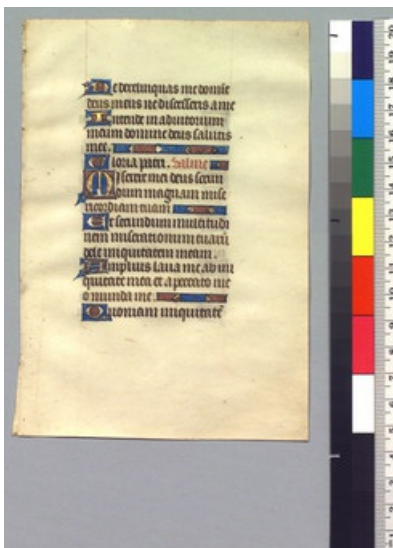 Ne derelinquas me domine
deus meus ne discesseris a me
Intende in adiutorium
meum domine deus salutis
mee.
Gloria patri. Psalmus
Miserere mei deus secun
dum magnam mise
ricordiam tuam
Et secundum multitudi
nem miserationum tuarum
dele iniquitatem meam.
Amplius laua me ab ini
quitate mea et a peccato me
o munda me.
Quoniam iniquitatem